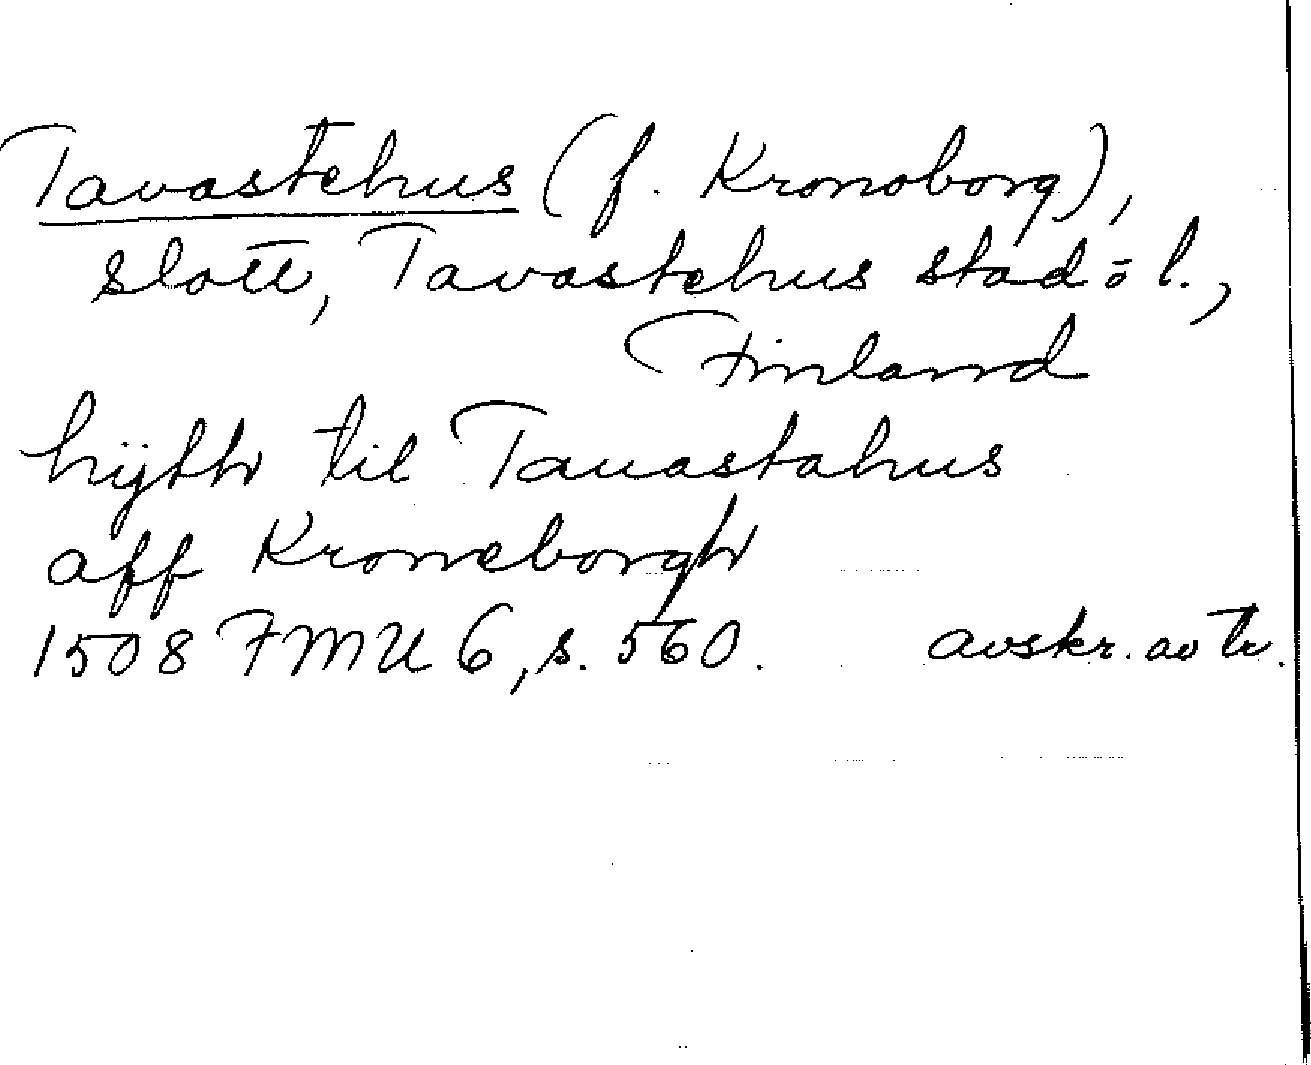 Tavastehus (f. Kronoborg),
slott, Tavastehus stad o l.,
Finland
hijtth til Tauastahus
aff Kroneborgh
1508 FMU 6, s. 560. avskr. av tr.